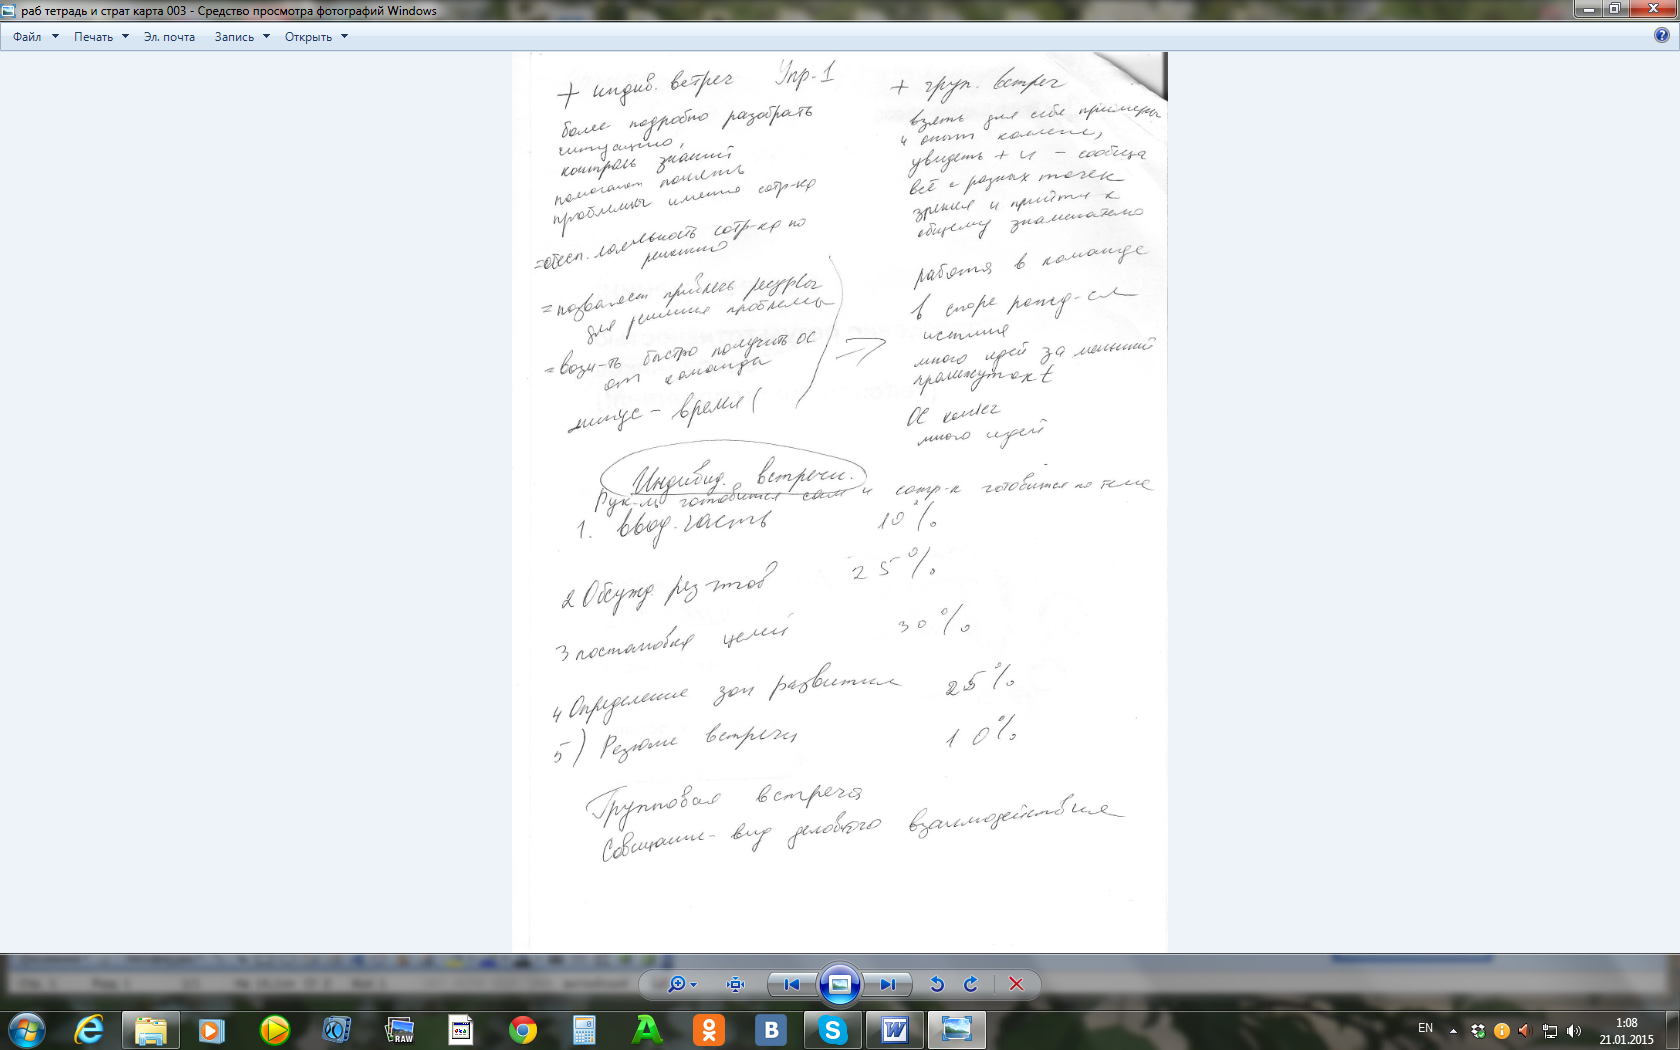 раб тетрадь и страт карта 003 - Средство просмотра фотографий Windows
Файл Печать Эл. почта Запись Открыть
+ индив. встреч Упр-1
более подробно разобрать
ситуацию,
контроль знаний
помогают понять
проблемы именно сотр-ка
=обесп. лояльность сотр-ка по
= позволяет привлечь ресурсы
для решения проблемы
= возм-ть быстро получить ОС
от команды
минус - время (
+ груп. встреч
взять для себя примеры
и опыт коллеги,
увидеть + и - сообща
всё с разных точек
зрения и прийти к
общему знаменателю
работа в команде
в споре рожд-ся
истина
много идей за меньший
промежуток t
ОС коллег
много идей
Индивид. встречи.
Рук-ль готовится сам и сотр-к готовится по теме
1. Ввод. часть 10%
2 Обсужд. рез-тов 25%
3 постановка целей 30%
4 Определение зон развития 25%
5) Резюме встречи 10%
Групповая встреча
Совещание - вид делового взаимодействия
RAW
EN
1:08
21.01.2015